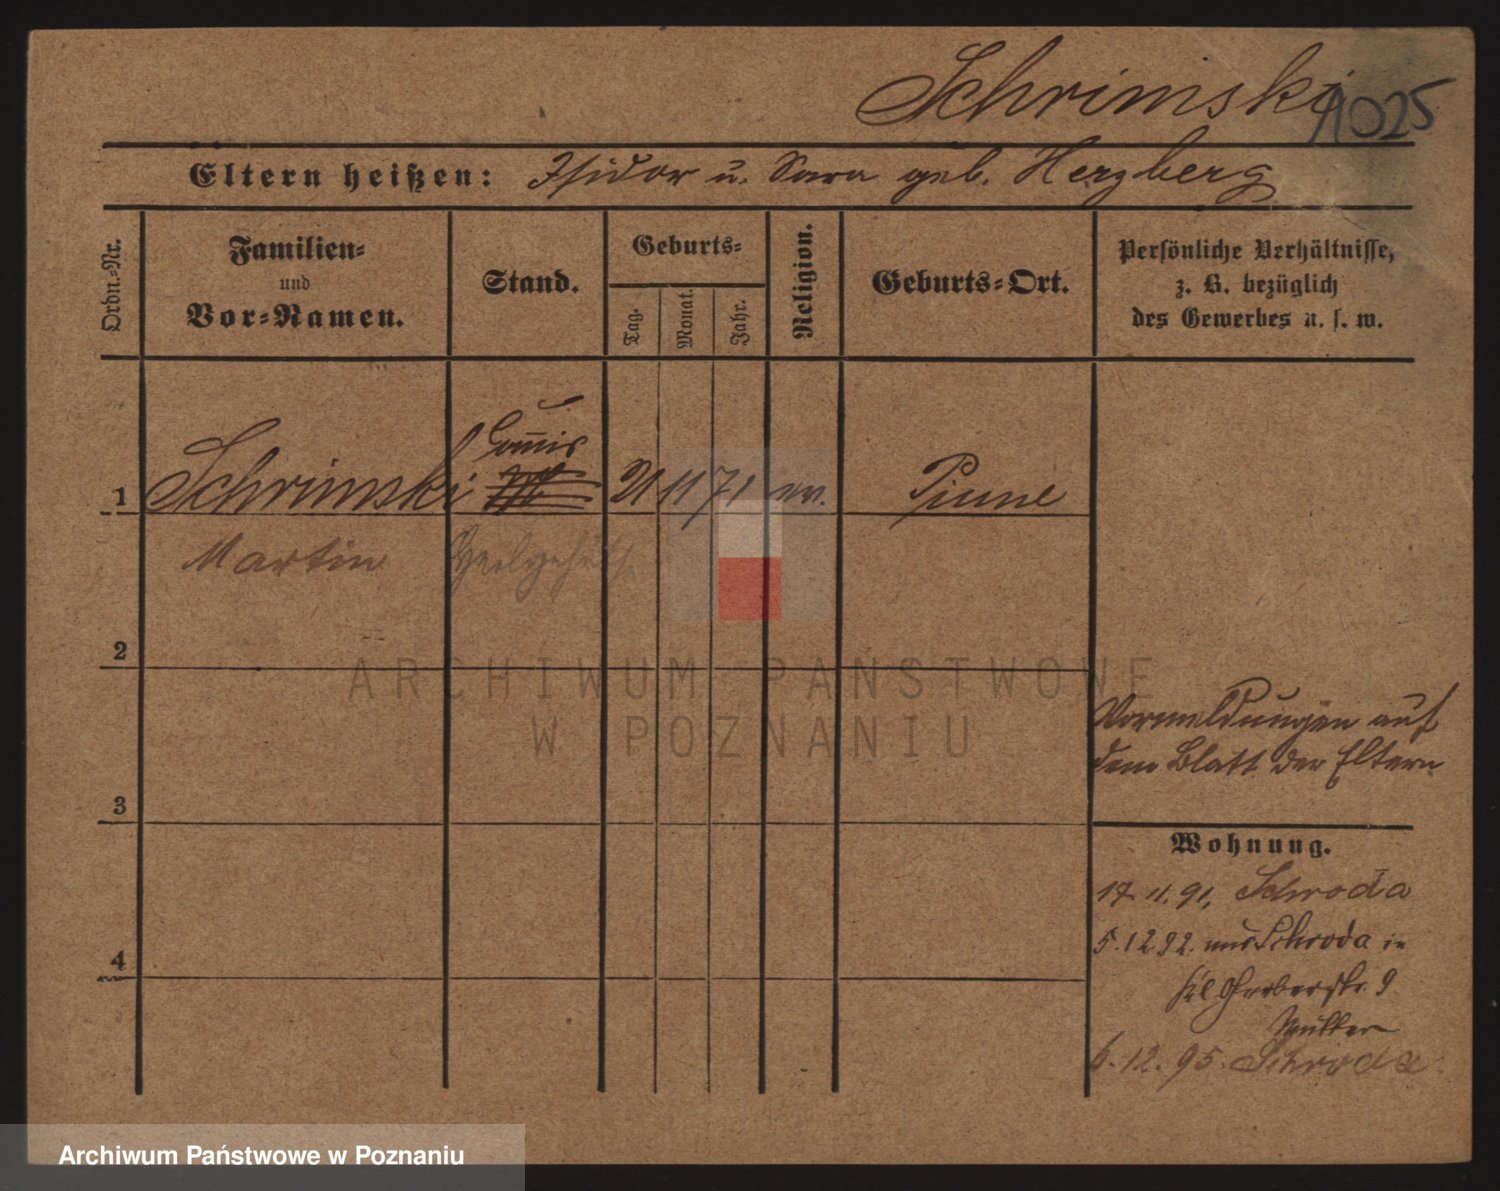 Schrimski
1025
Eltern heißen: Isidor u. Sara geb. Herzberg
Ordn.-Nr.
Familien-
und
Vor-Namen.
Stand.
Geburts-
Tag.
Monat.
Jahr.
Religion.
Geburts-Ort.
Persönliche Verhältnisse,
z. B. bezüglich
des Gewerbes u. s. w.
Comis
1 Schrimski 21 11 71 Pinne
Martin Heilgehülfe
2
ARCHIWUM PAŃSTWOWE
W POZNANIU
Vormeldungen auf
dem Blatt der Eltern
3
Wohnung.
17. 11. 91, Schroda
5.12.92. aus Schroda in
4
kl. Gerberstr. 9
Mutter
6.12.95. Schroda
Archiwum Państwowe w Poznaniu